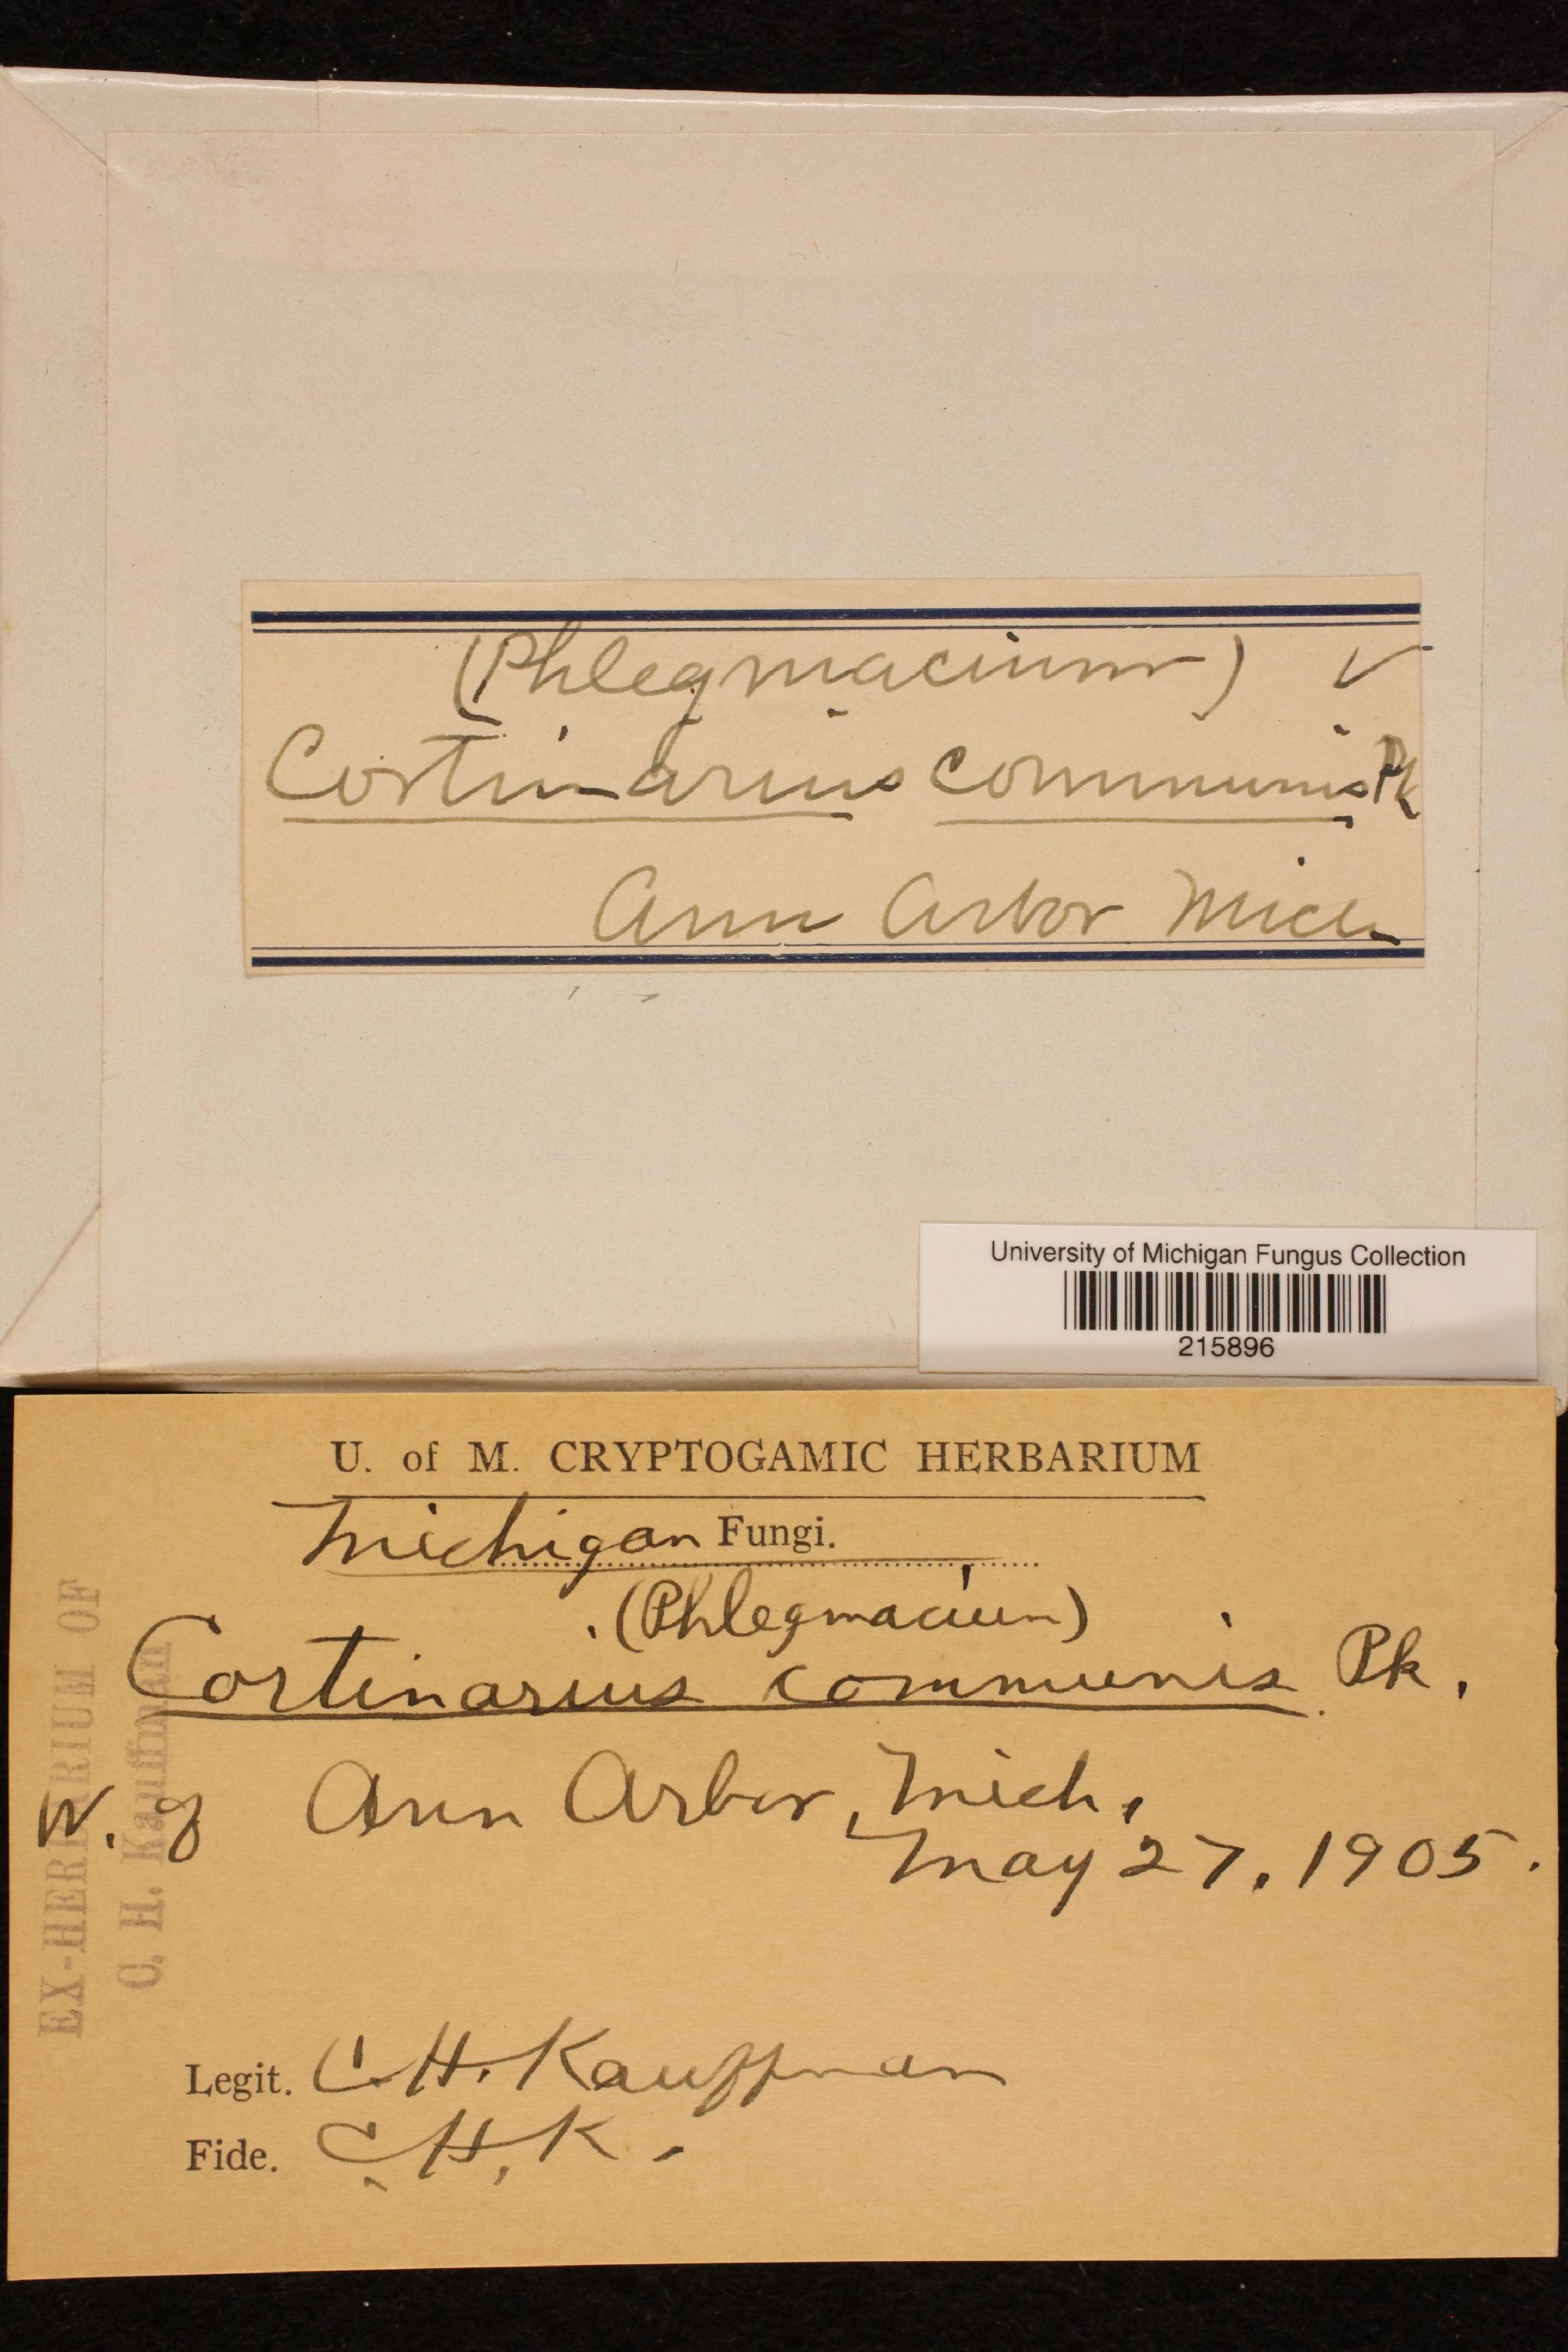 (Phlegmacium) ✓
Cortinarius communis Pk
Ann Arbor Mich
University of Michigan Fungus Collection
215896
U. of M. CRYPTOGAMIC HERBARIUM
Michigan Fungi.
(Phlegmacium)
Cortinarius communis Pk.
Ann Arbor, Mich.
May 27, 1905.
EX-HERBARIUM OF
C. H. Kauffman
Legit. C. H. Kauffman
Fide. C. H. K.